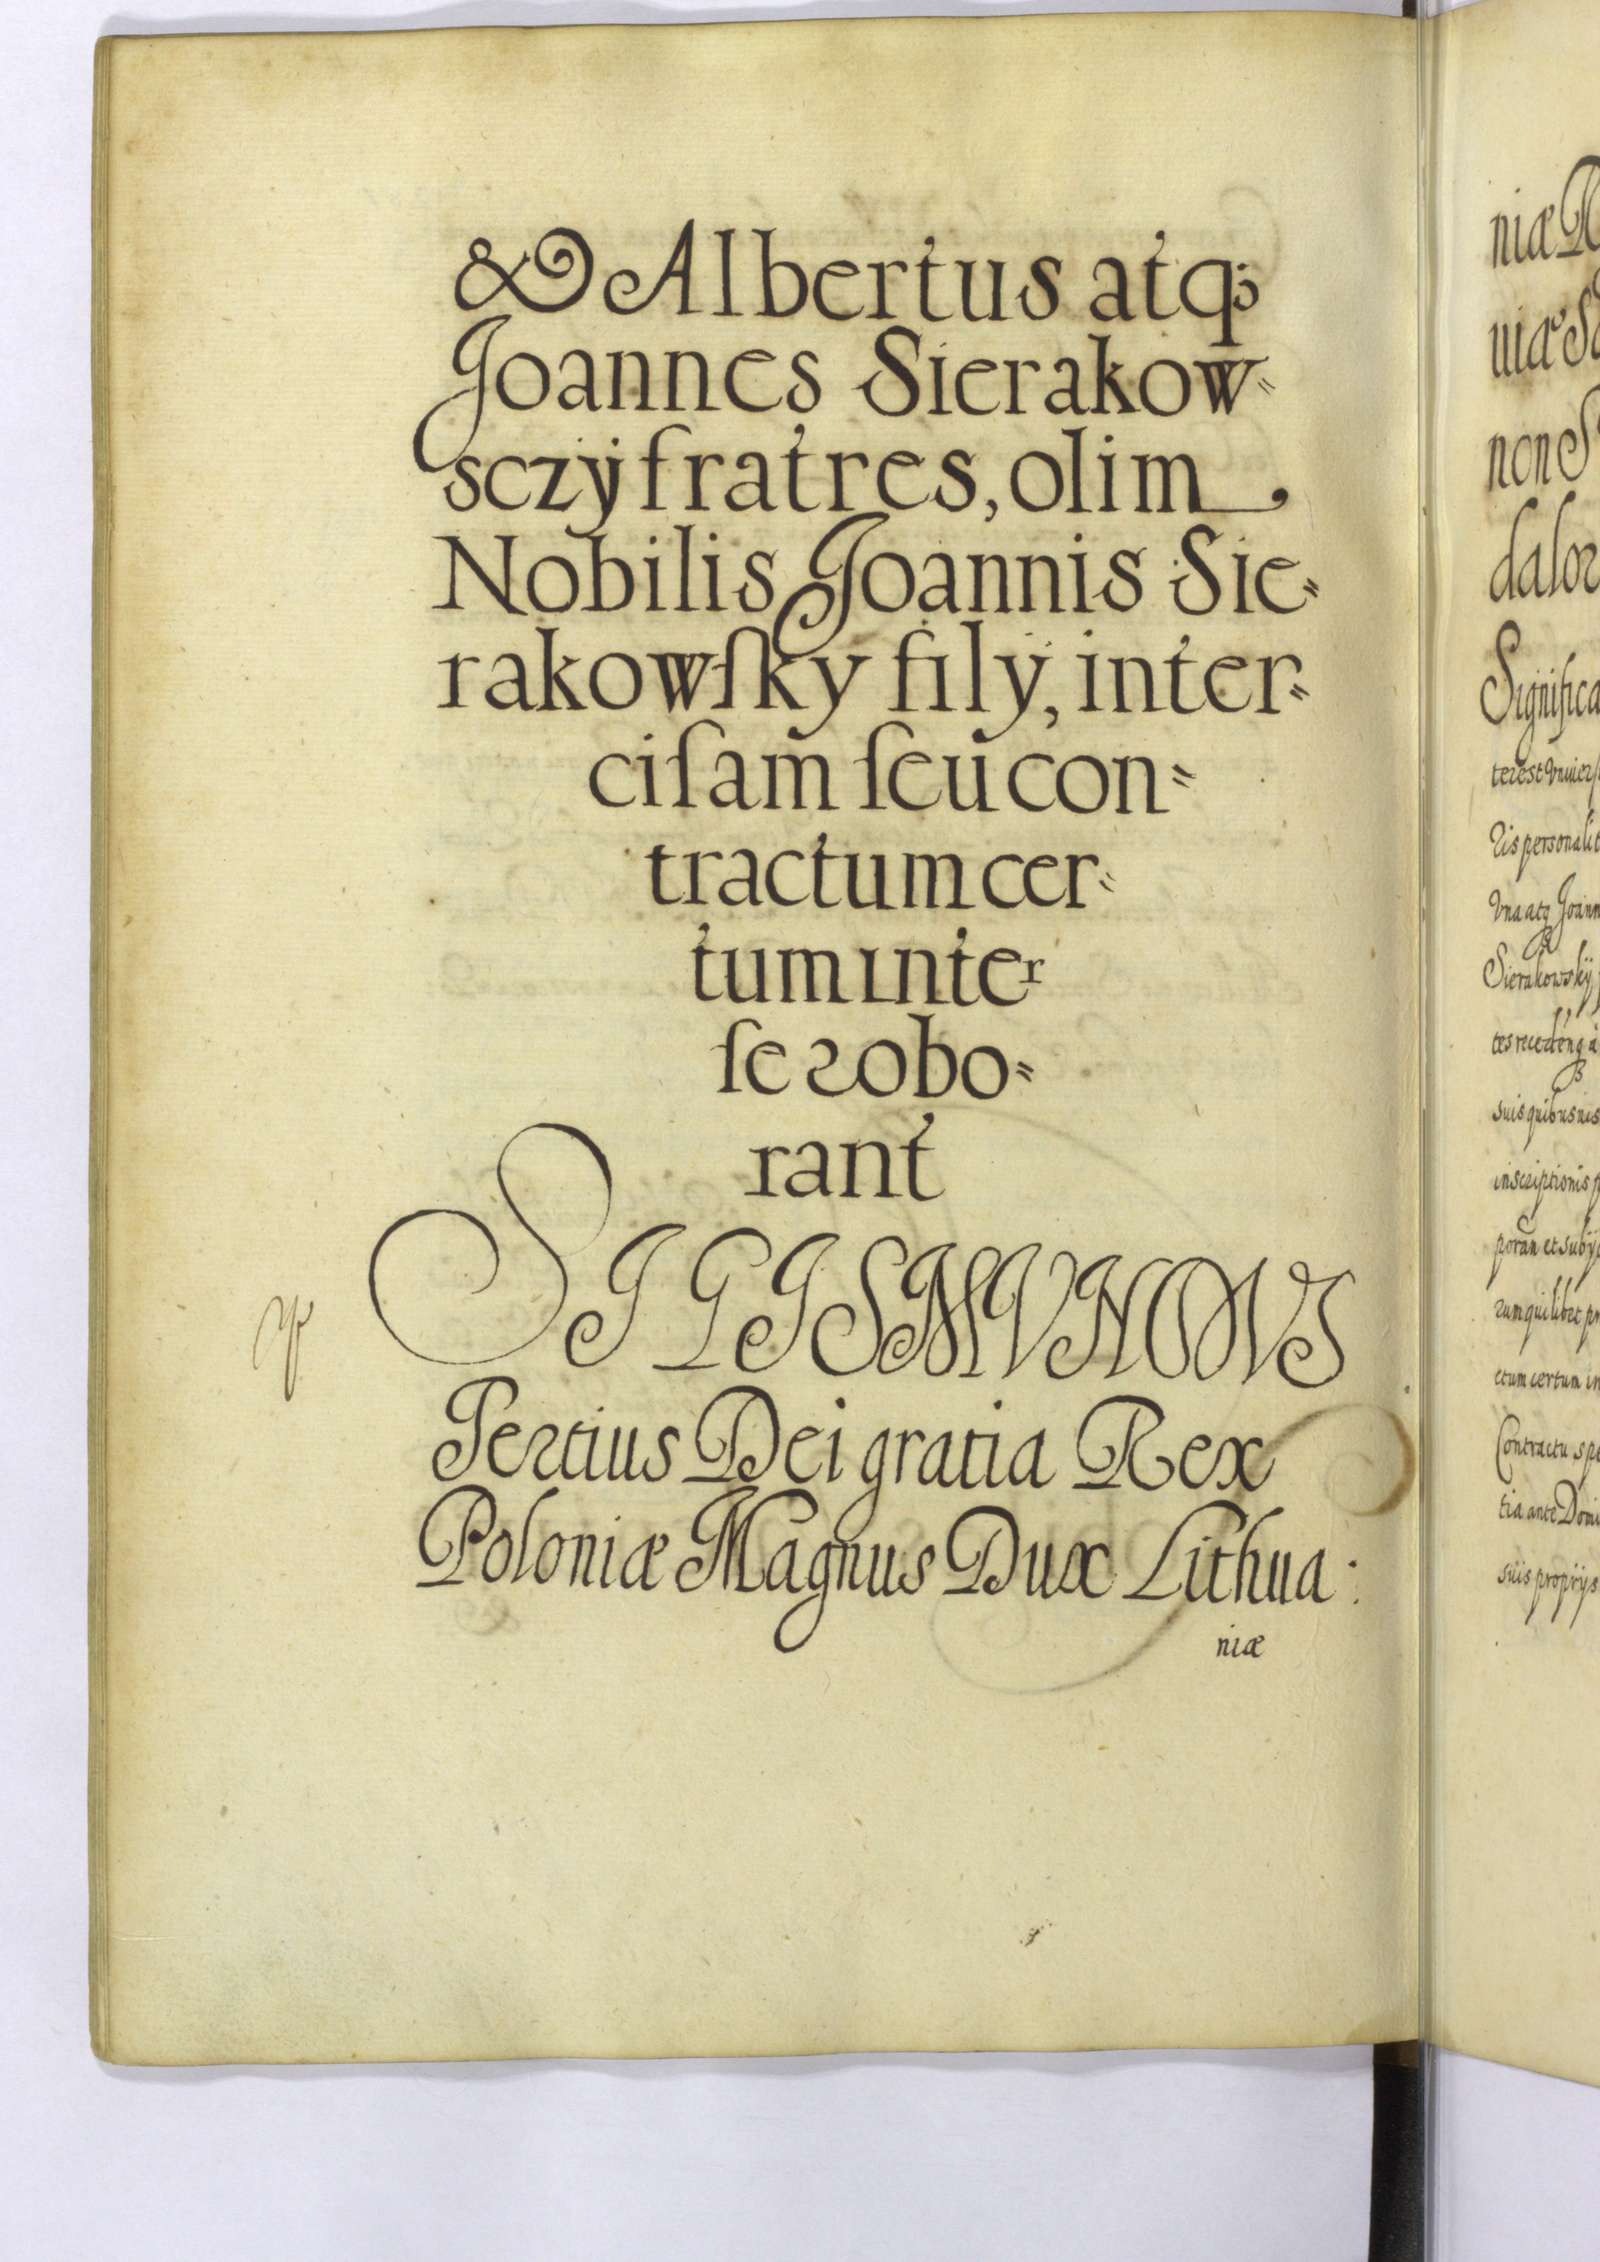 & Albertus atq;
Joannes Sierakow=
sczÿ fratres, olim
Nobilis Joannis Sie=
rakowſky filÿ, inter=
ciſam ſeu con=
tractum cer=
tum inter
ſe robo=
rant
SIGISMVNDVS
Tertius Dei gratia Rex
Poloniæ Magnus Dux Lithua:
niæ
niæ
uiæ
non
dalor
Significa
terest Vniuers
personalit
Vna atq Joann
Sierakowskÿ
suis quibusuis
inscriptionis
et subÿ
quilibet
ctum certum in
Contractu
tia ante Domi
suis proprÿs